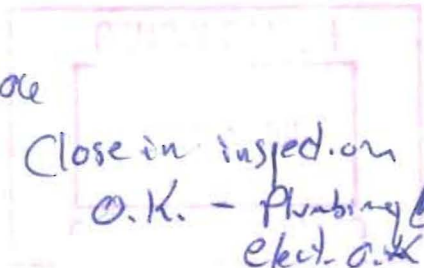 ok
Close in inspection
O.K. - Plumbing &
elect. O.K